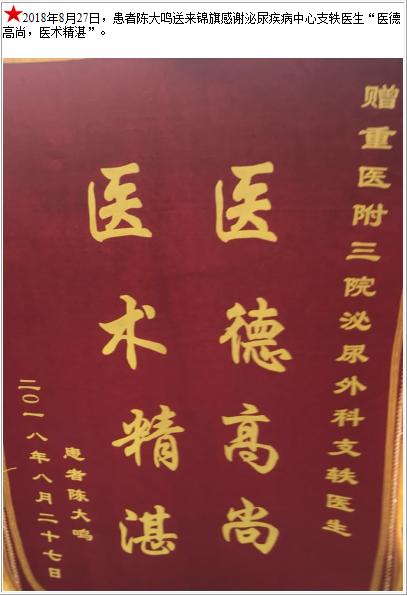 2018年8月27日，患者陈大鸣送来锦旗感谢泌尿疾病中心支轶医生“医德
高尚，医术精湛”。
赠重医附三院泌尿外科支轶医生
医德高尚
医术精湛
患者陈大鸣
二〇一八年八月二十七日